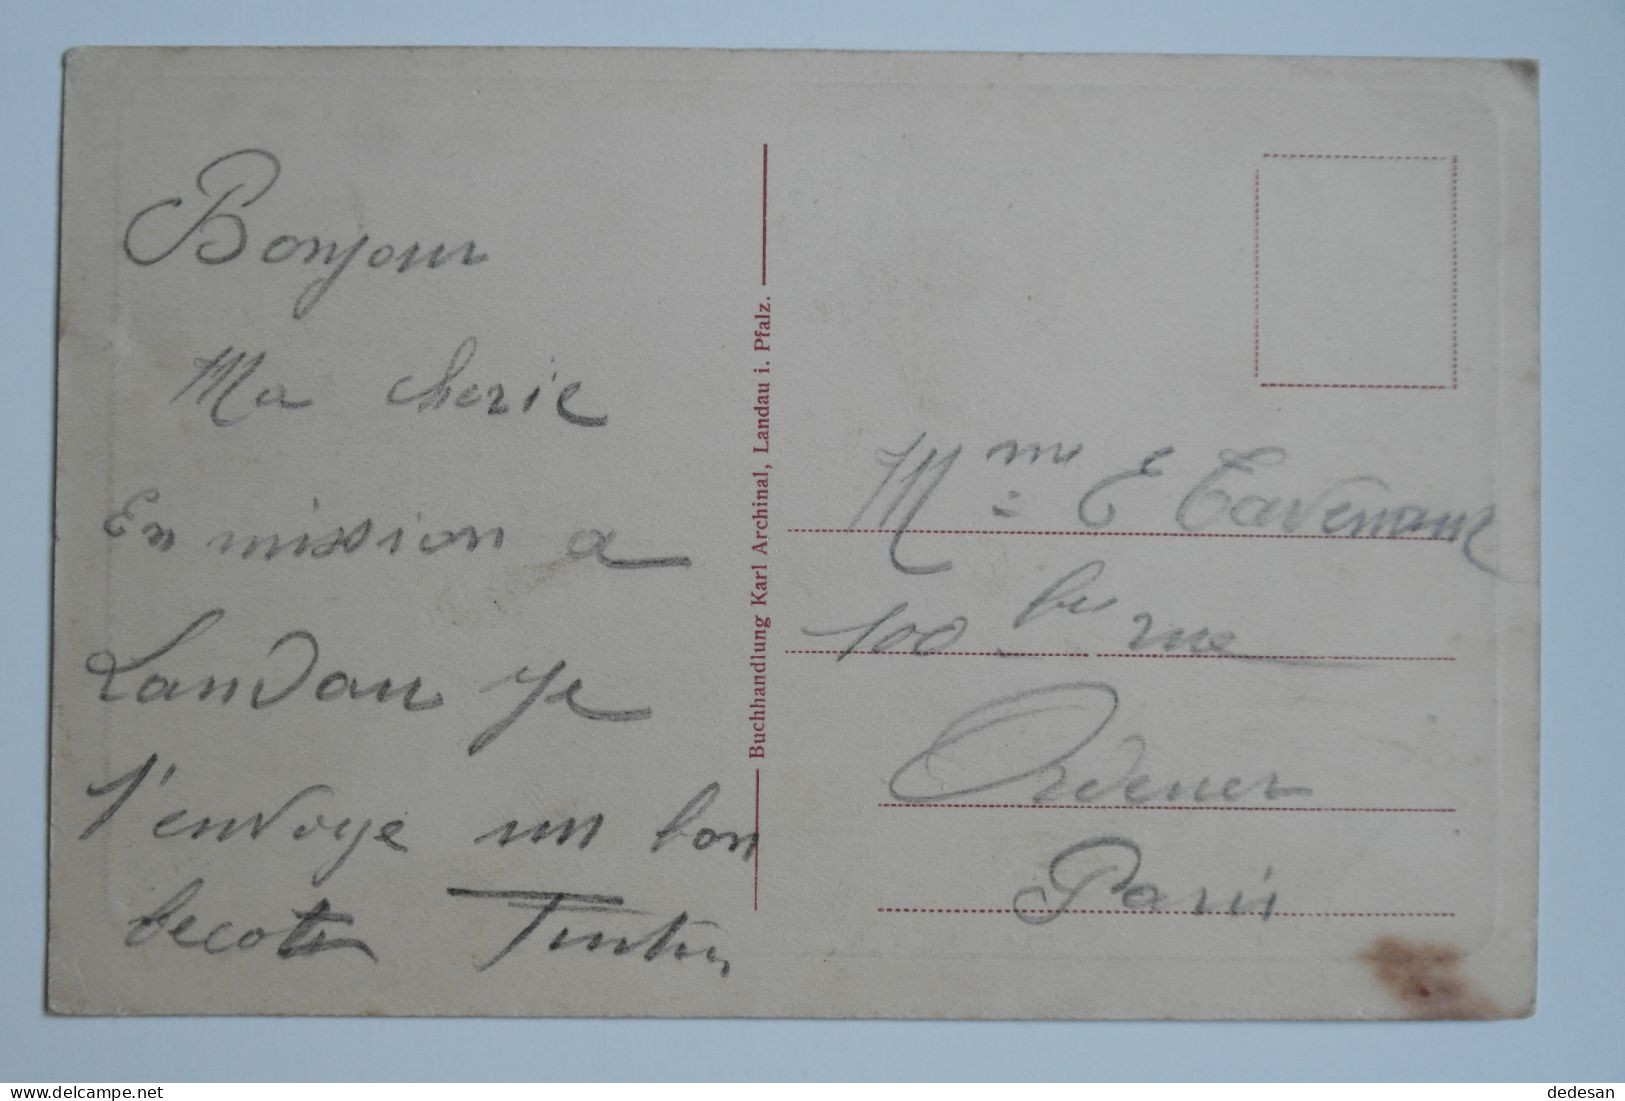 Bonjour
Ma cherie
En mission a
Landau je
t'envoye un bon
becot Tintin
Buchhandlung Karl Archinal, Landau i. Pfalz.
Mme E
100 bis rue
Ordener
Paris
delcampe.net
dedesan